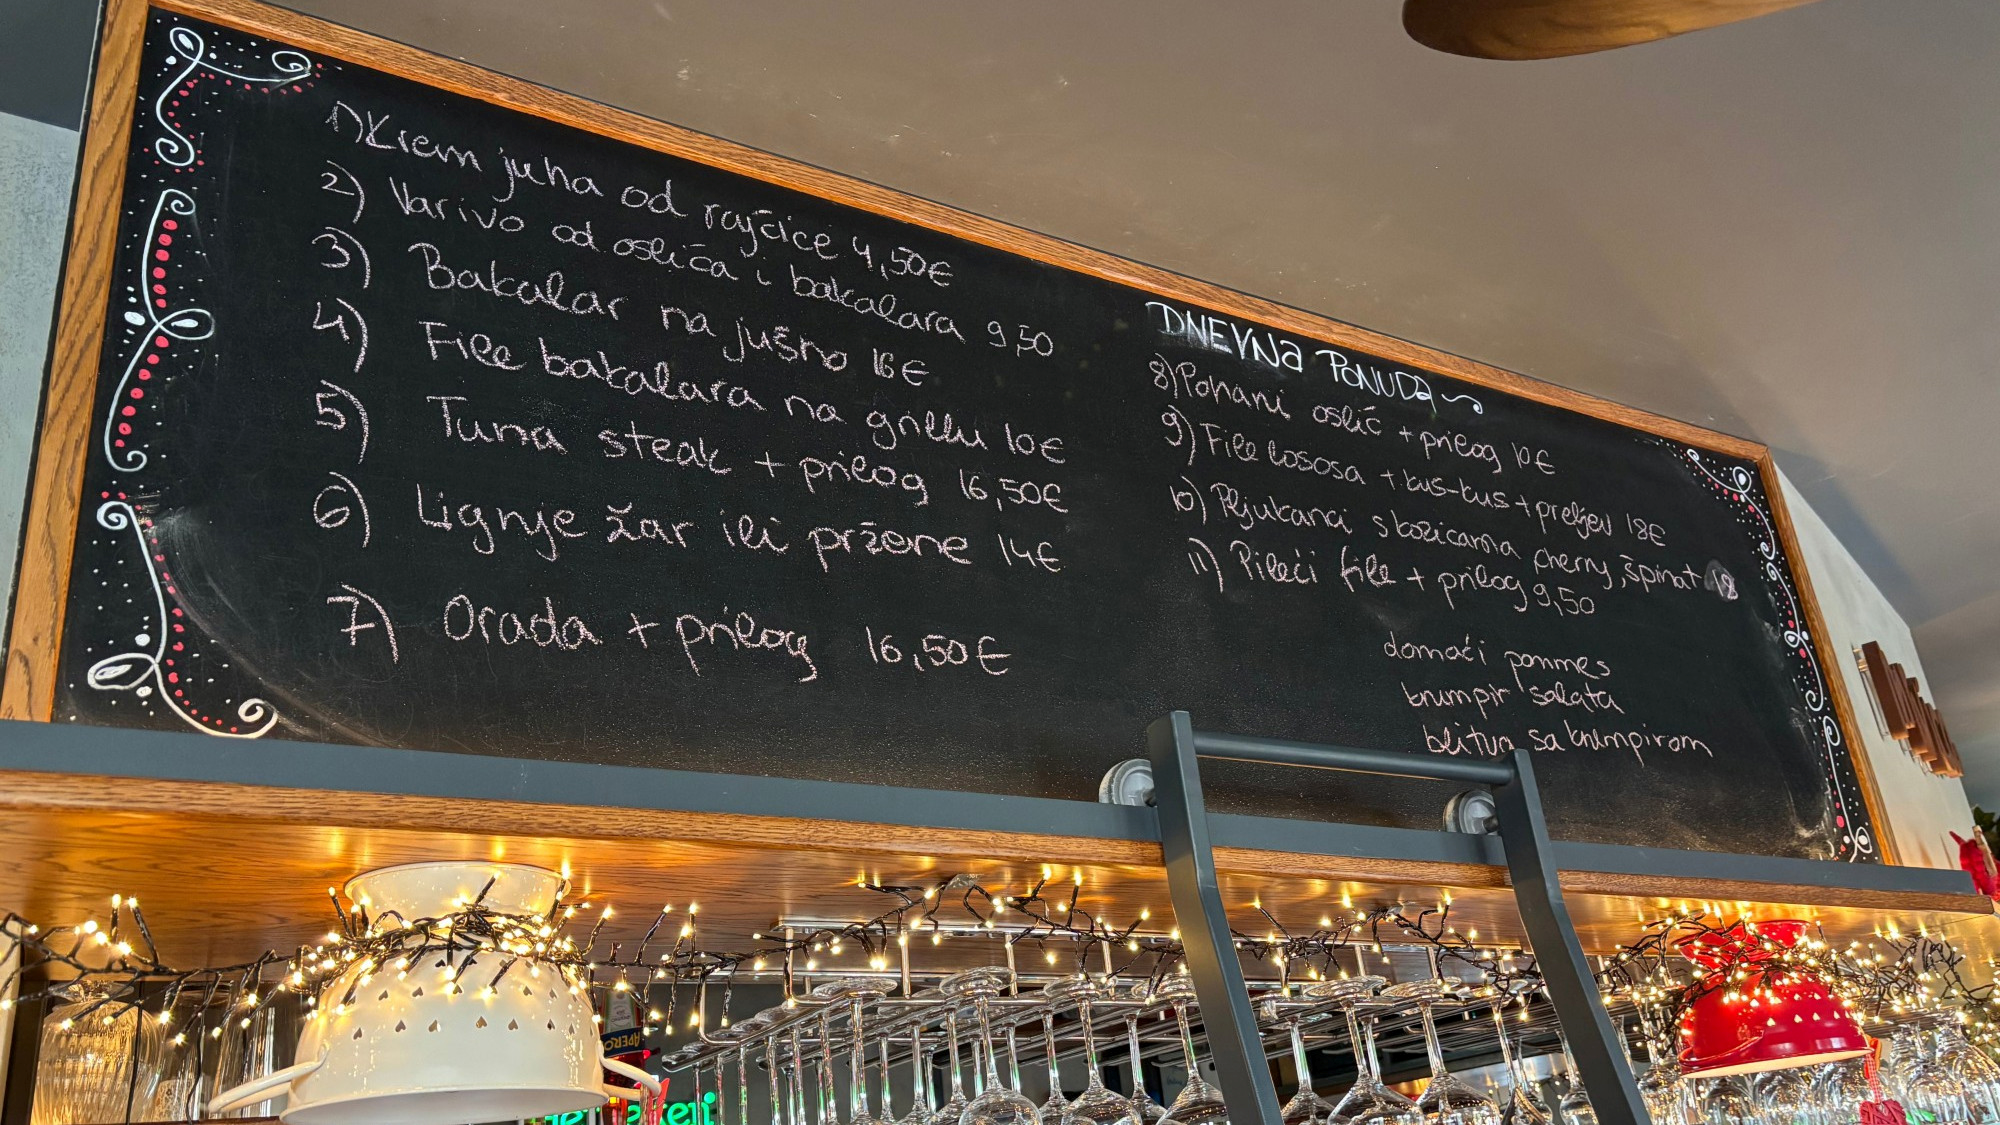 1) Krem juha od rajčice 4,50€
2) Varivo od oslića i bakalara 9,50
3) Bakalar na jušno 16€
4) File bakalara na grillu 10€
5) Tuna steak + prilog 16,50€
6) Lignje žar ili pržene 14€
7) Orada + prilog 16,50€
DNEVNA PONUDA
8) Pohani oslić + prilog 10€
9) File lososa + kus-kus + preljev 18€
10) Pljukanci s kozicama, cherry, špinat 18
11) Pileći file + prilog 9,50
domaći pommes
krumpir salata
blitva sa krumpirom
APEROL
Heineken